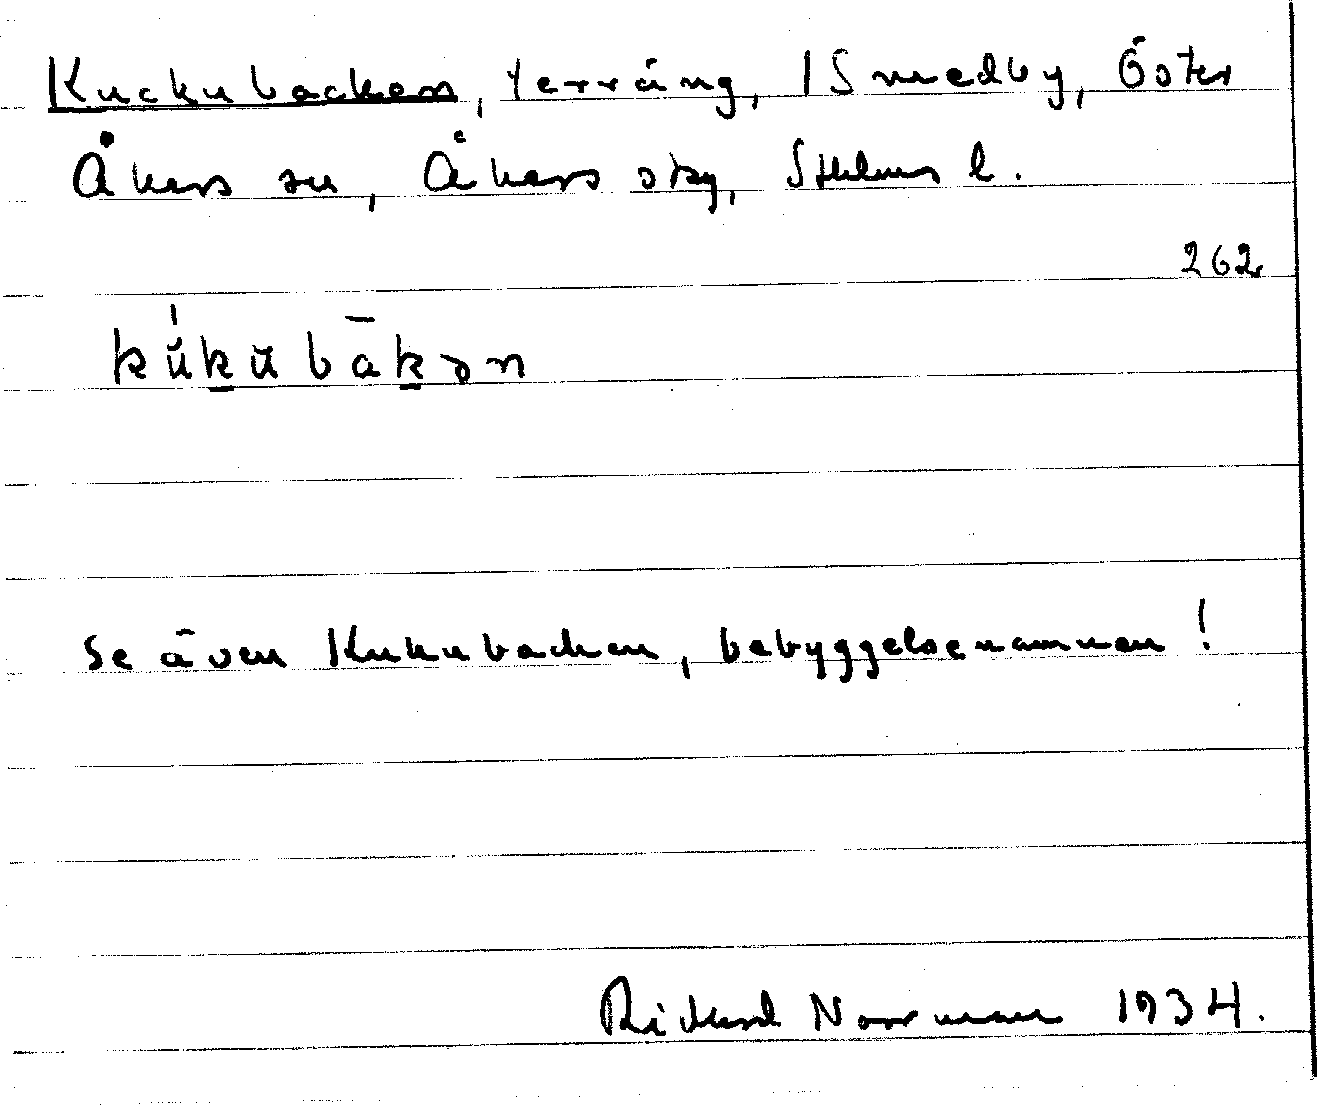 Kuckubacken, terräng, 1 Smedby, Öster
Åkers sn, Åkers skg, Sthlms l.
262
kúkŭbākən
Se även Kukubacken, bebyggelsenamnen!
Rickard Norrman 1934.